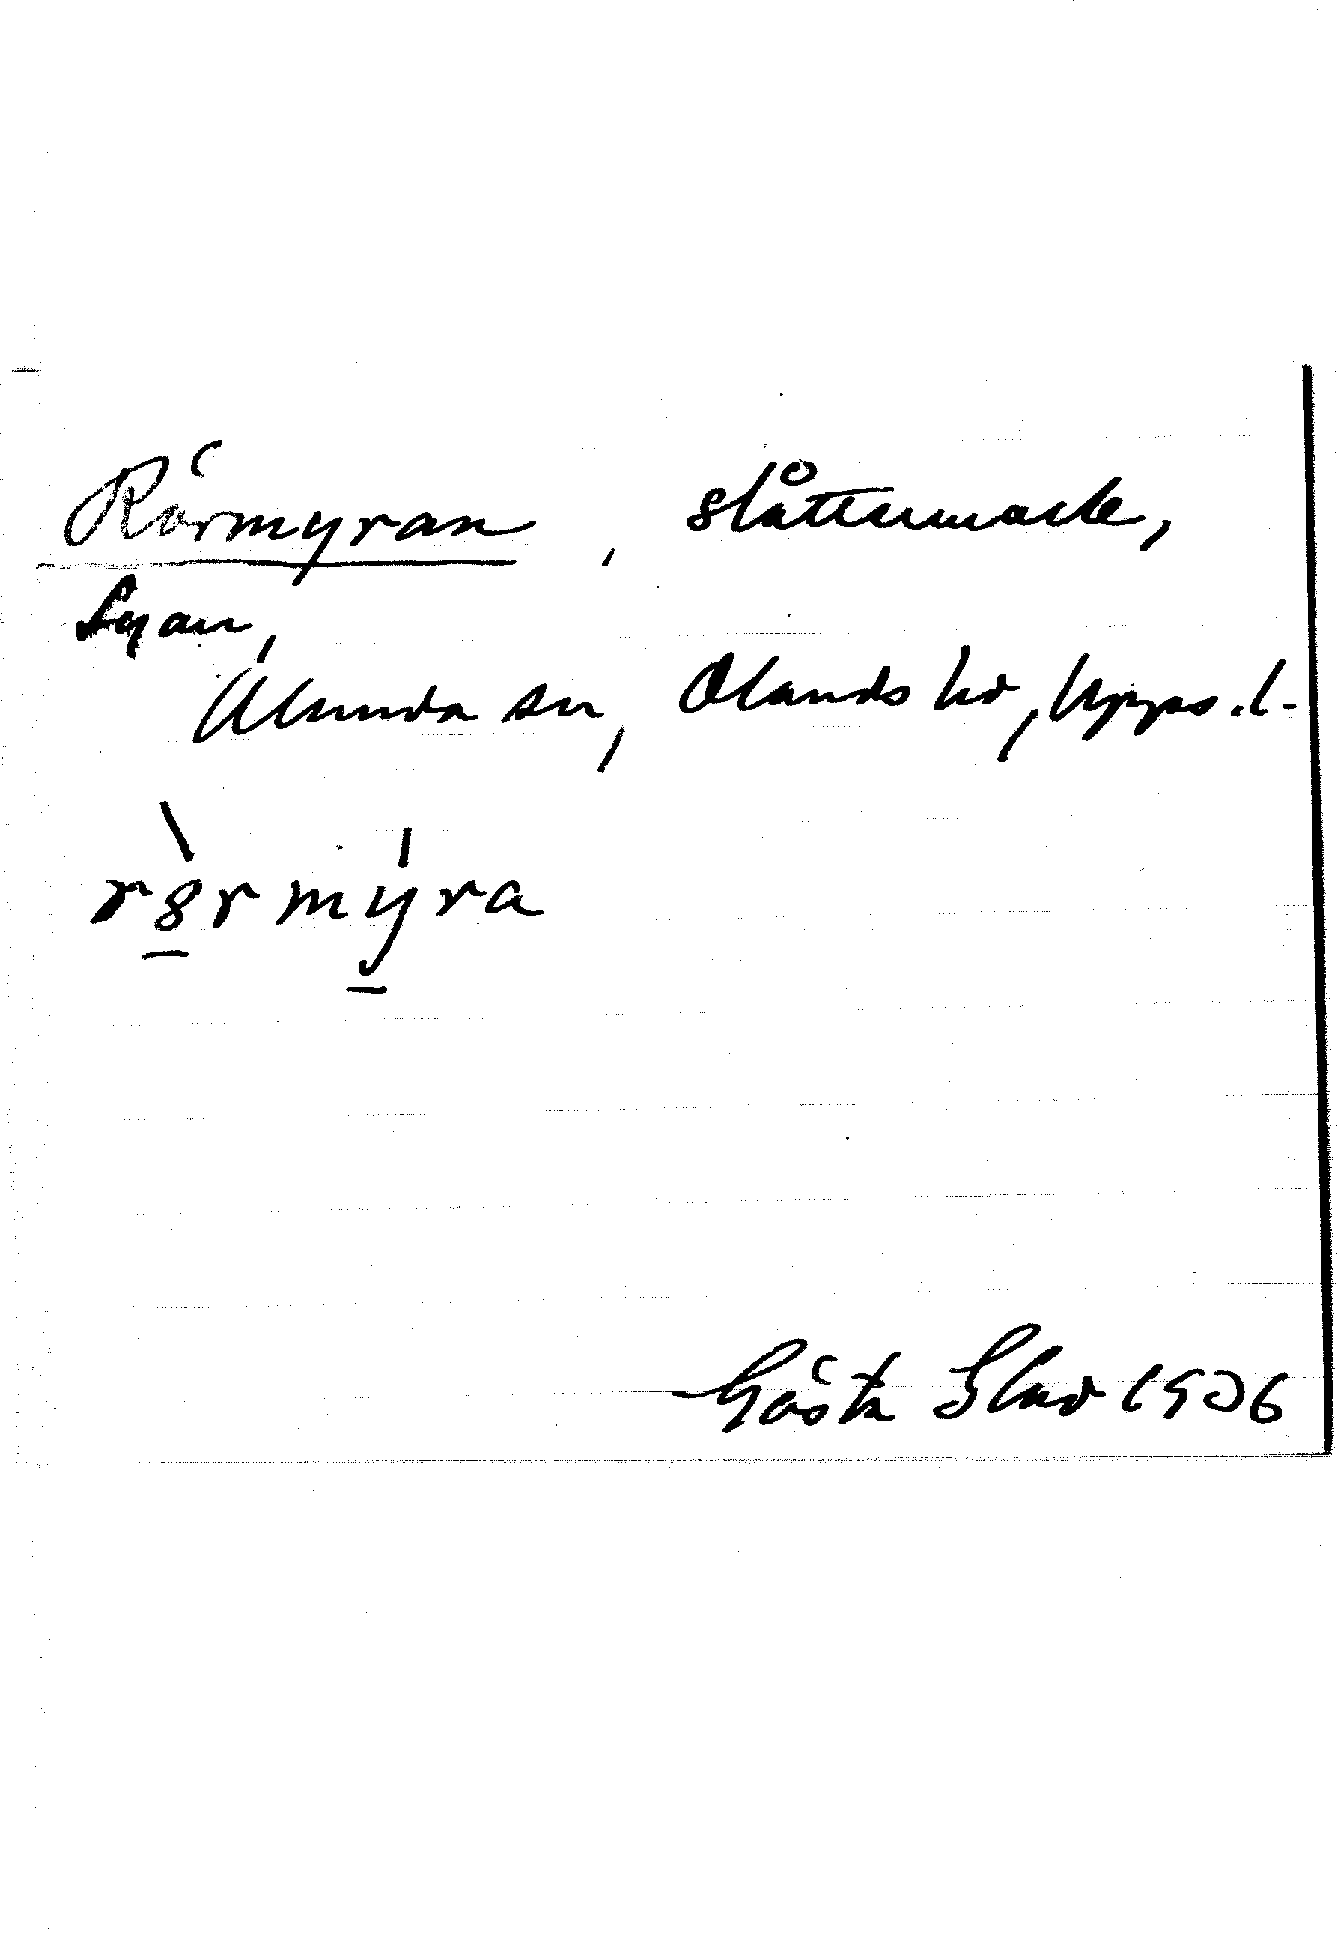 Rörmyran, slåttermark,
Lyan,
Alunda sn, Olands hd, Upps. l.
rörmyra
Gösta Slav 1936